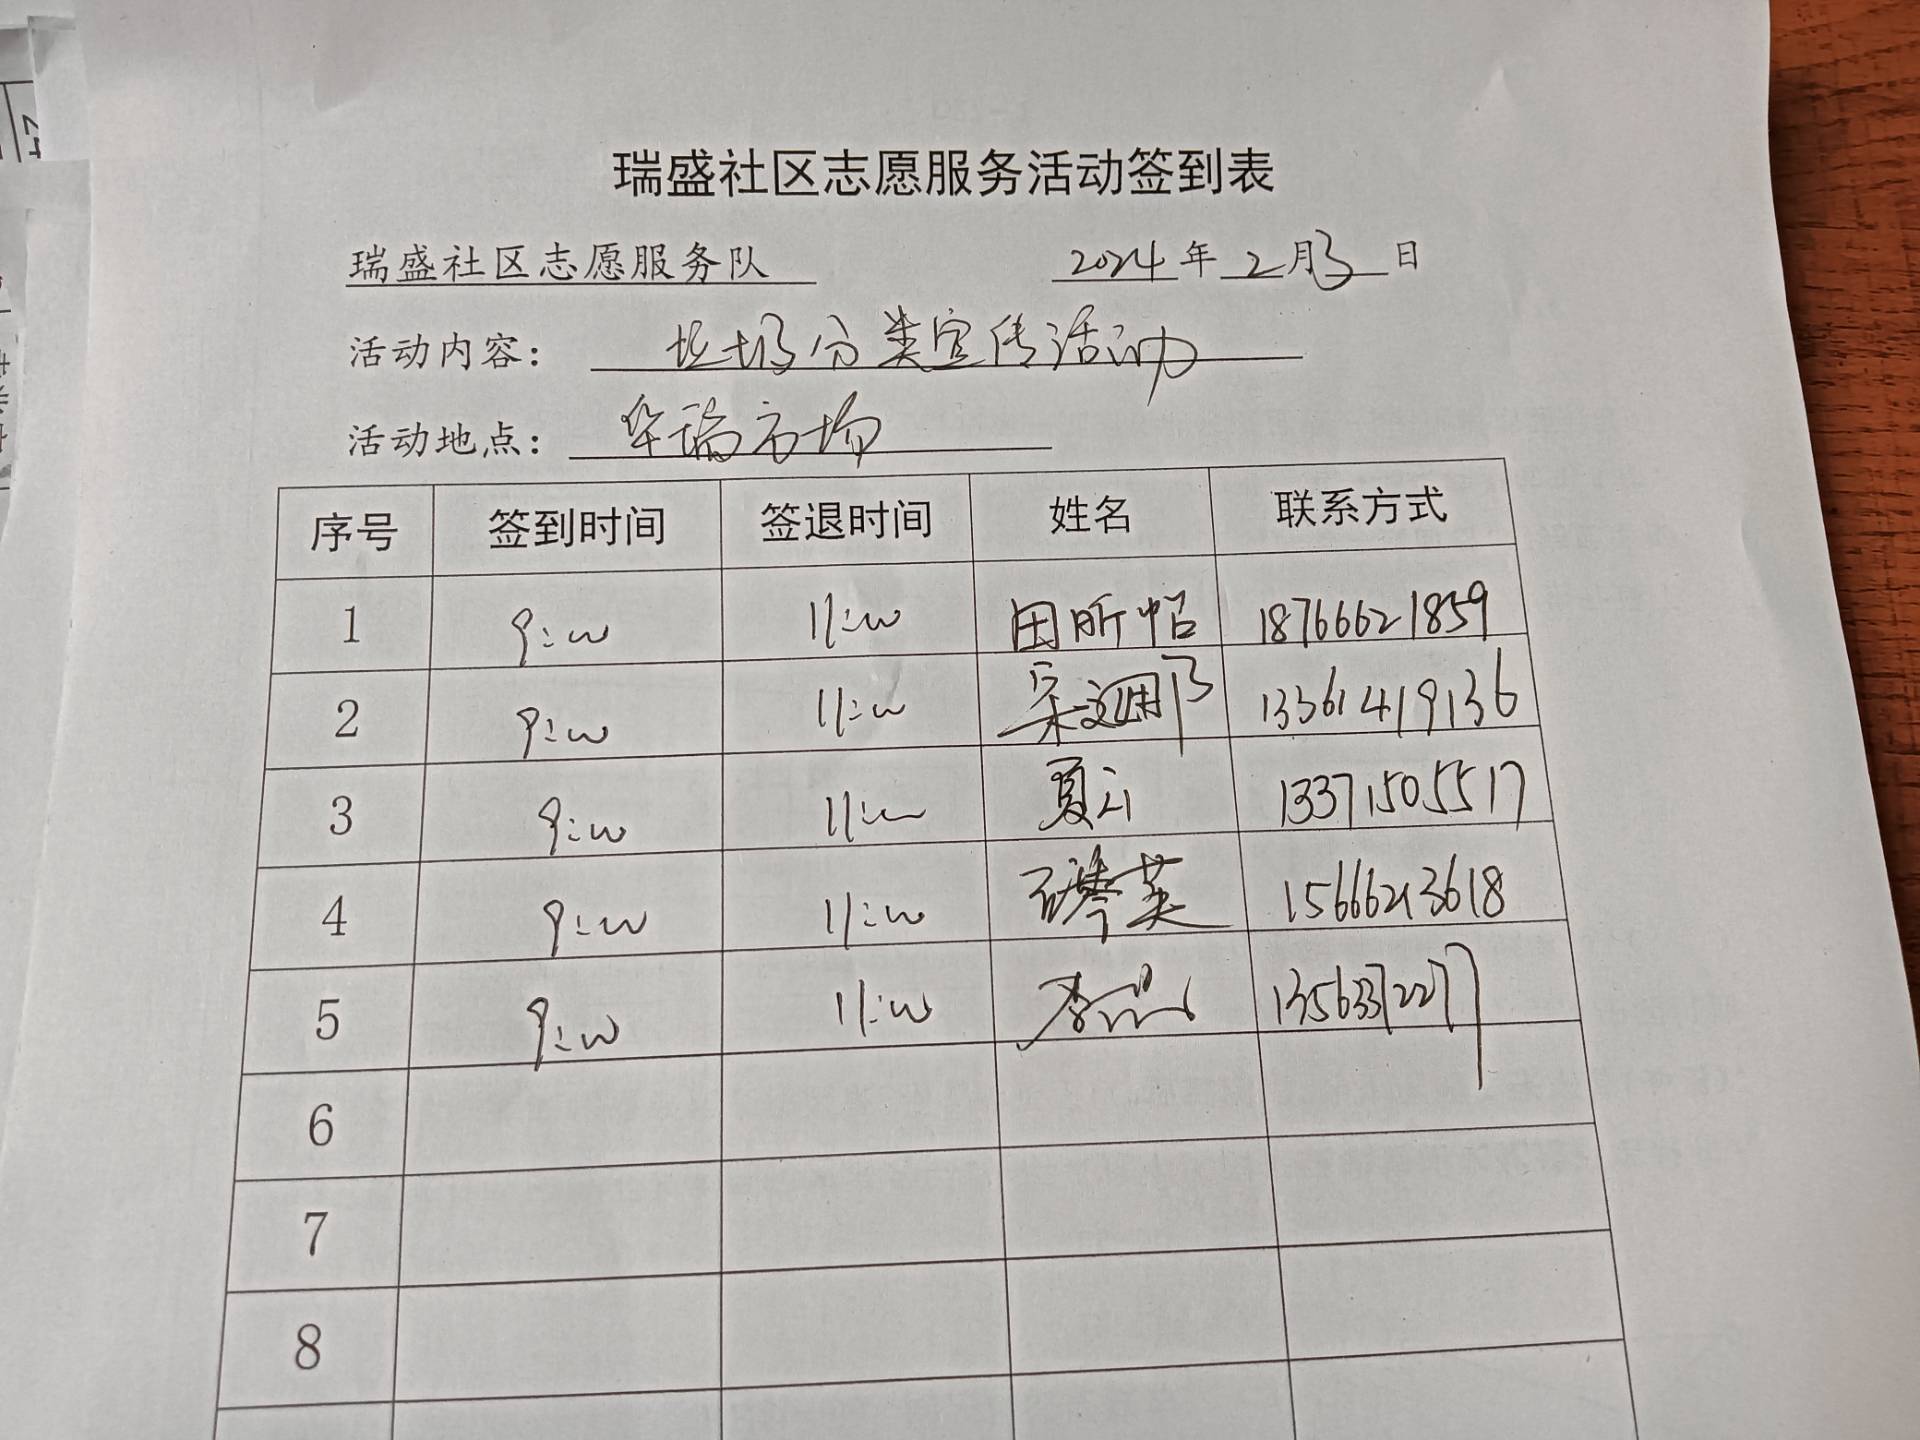 瑞盛社区志愿服务活动签到表
瑞盛社区志愿服务队 2024年2月3日
活动内容：垃圾分类宣传活动
活动地点：华瑞市场
序号 签到时间 签退时间 姓名 联系方式
1 9:00 11:00 田昕 18766621859
2 9:00 11:00 宋 13361419136
3 9:00 11:00 夏云 13371505517
4 9:00 11:00 石琴英 15666213618
5 9:00 11:00 李 13563372277
6
7
8